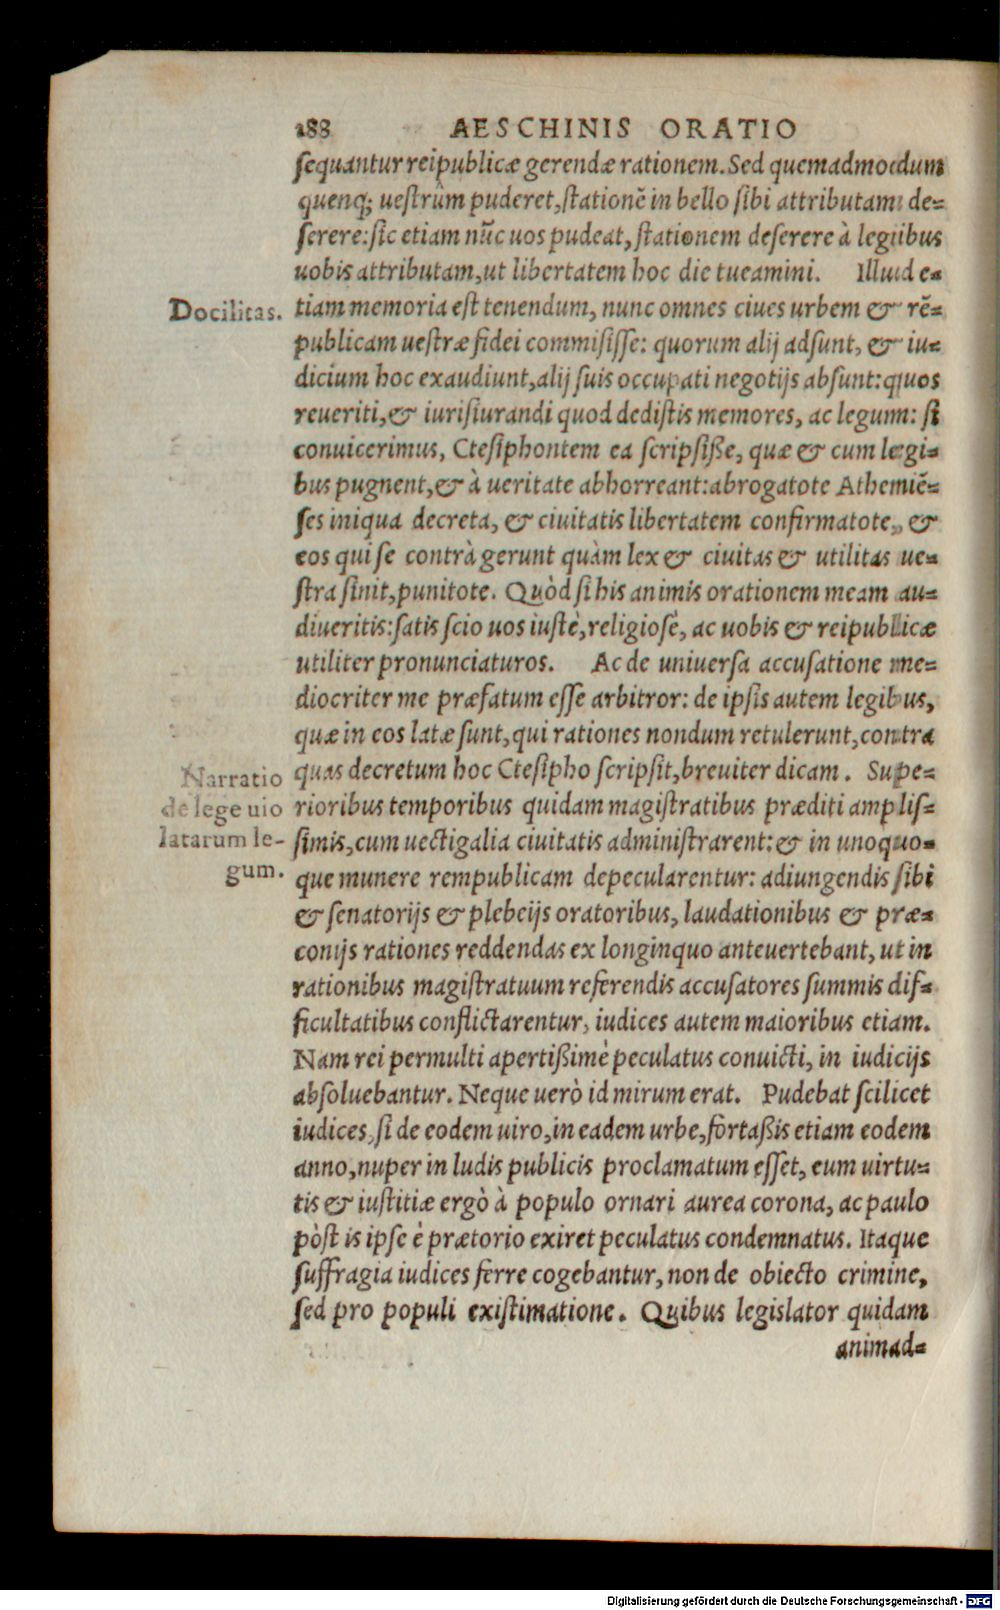 188 AESCHINIS ORATIO
sequantur reipublicæ gerendæ rationem. Sed quemadmodum
quenq; uestrûm puderet, stationē in bello sibi attributam de=
serere: sic etiam nūc uos pudeat, stationem deserere à legibus
uobis attributam, ut libertatem hoc die tueamini. Illud e=
Docilitas.
tiam memoria est tenendum, nunc omnes ciues urbem & rē=
publicam uestræ fidei commisisse: quorum alij adsunt, & iu=
dicium hoc exaudiunt, alij suis occupati negotijs absunt: quos
reueriti, & iurisiurandi quod dedistis memores, ac legum: si
conuicerimus, Ctesiphontem ea scripsiße, quæ & cum legi=
bus pugnent, & à ueritate abhorreant: abrogatote Atheniē=
ses iniqua decreta, & ciuitatis libertatem confirmatote, &
eos qui se contrà gerunt quàm lex & ciuitas & utilitas ue=
stra sinit, punitote. Quòd si his animis orationem meam au=
diueritis: satis scio uos iustè, religiosè, ac uobis & reipublicæ
utiliter pronunciaturos. Ac de uniuersa accusatione me=
diocriter me præfatum esse arbitror: de ipsis autem legibus,
quæ in eos latæ sunt, qui rationes nondum retulerunt, contra
Narratio
de lege uio
latarum le-
gum.
quas decretum hoc Ctesipho scripsit, breuiter dicam. Supe=
rioribus temporibus quidam magistratibus præditi amplis=
simis, cum uectigalia ciuitatis administrarent: & in unoquo=
que munere rempublicam depecularentur: adiungendis sibi
& senatorijs & plebeijs oratoribus, laudationibus & præ=
conijs rationes reddendas ex longinquo anteuertebant, ut in
rationibus magistratuum referendis accusatores summis dif=
ficultatibus conflictarentur, iudices autem maioribus etiam.
Nam rei permulti apertißimè peculatus conuicti, in iudicijs
absoluebantur. Neque uerò id mirum erat. Pudebat scilicet
iudices, si de eodem uiro, in eadem urbe, fortaßis etiam eodem
anno, nuper in ludis publicis proclamatum esset, eum uirtu=
tis & iustitiæ ergò à populo ornari aurea corona, ac paulo
pòst is ipse è prætorio exiret peculatus condemnatus. Itaque
suffragia iudices ferre cogebantur, non de obiecto crimine,
sed pro populi existimatione. Quibus legislator quidam
animad=
Digitalisierung gefördert durch die Deutsche Forschungsgemeinschaft - DFG